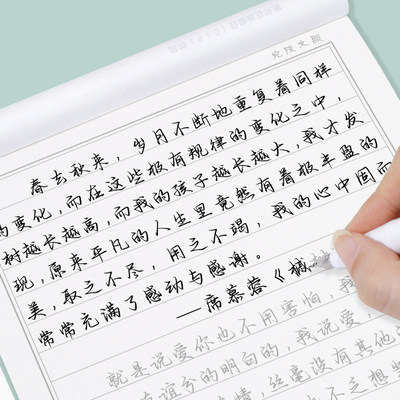 春去秋来，岁月不断地重复着同样
的变化，而在这些极有规律的变化之中，
树越长越高，而我的孩子越长越大，我才发
现，原来平凡的人生里竟然有着极丰盈的
美，取之不尽，用之不竭，我的心中因而
常常充满了感动与感谢。
——席慕蓉《槭
就是说爱你也不用害怕，我
谊兮的明白的，我说爱，
情，丝毫没有其他
也不乏想